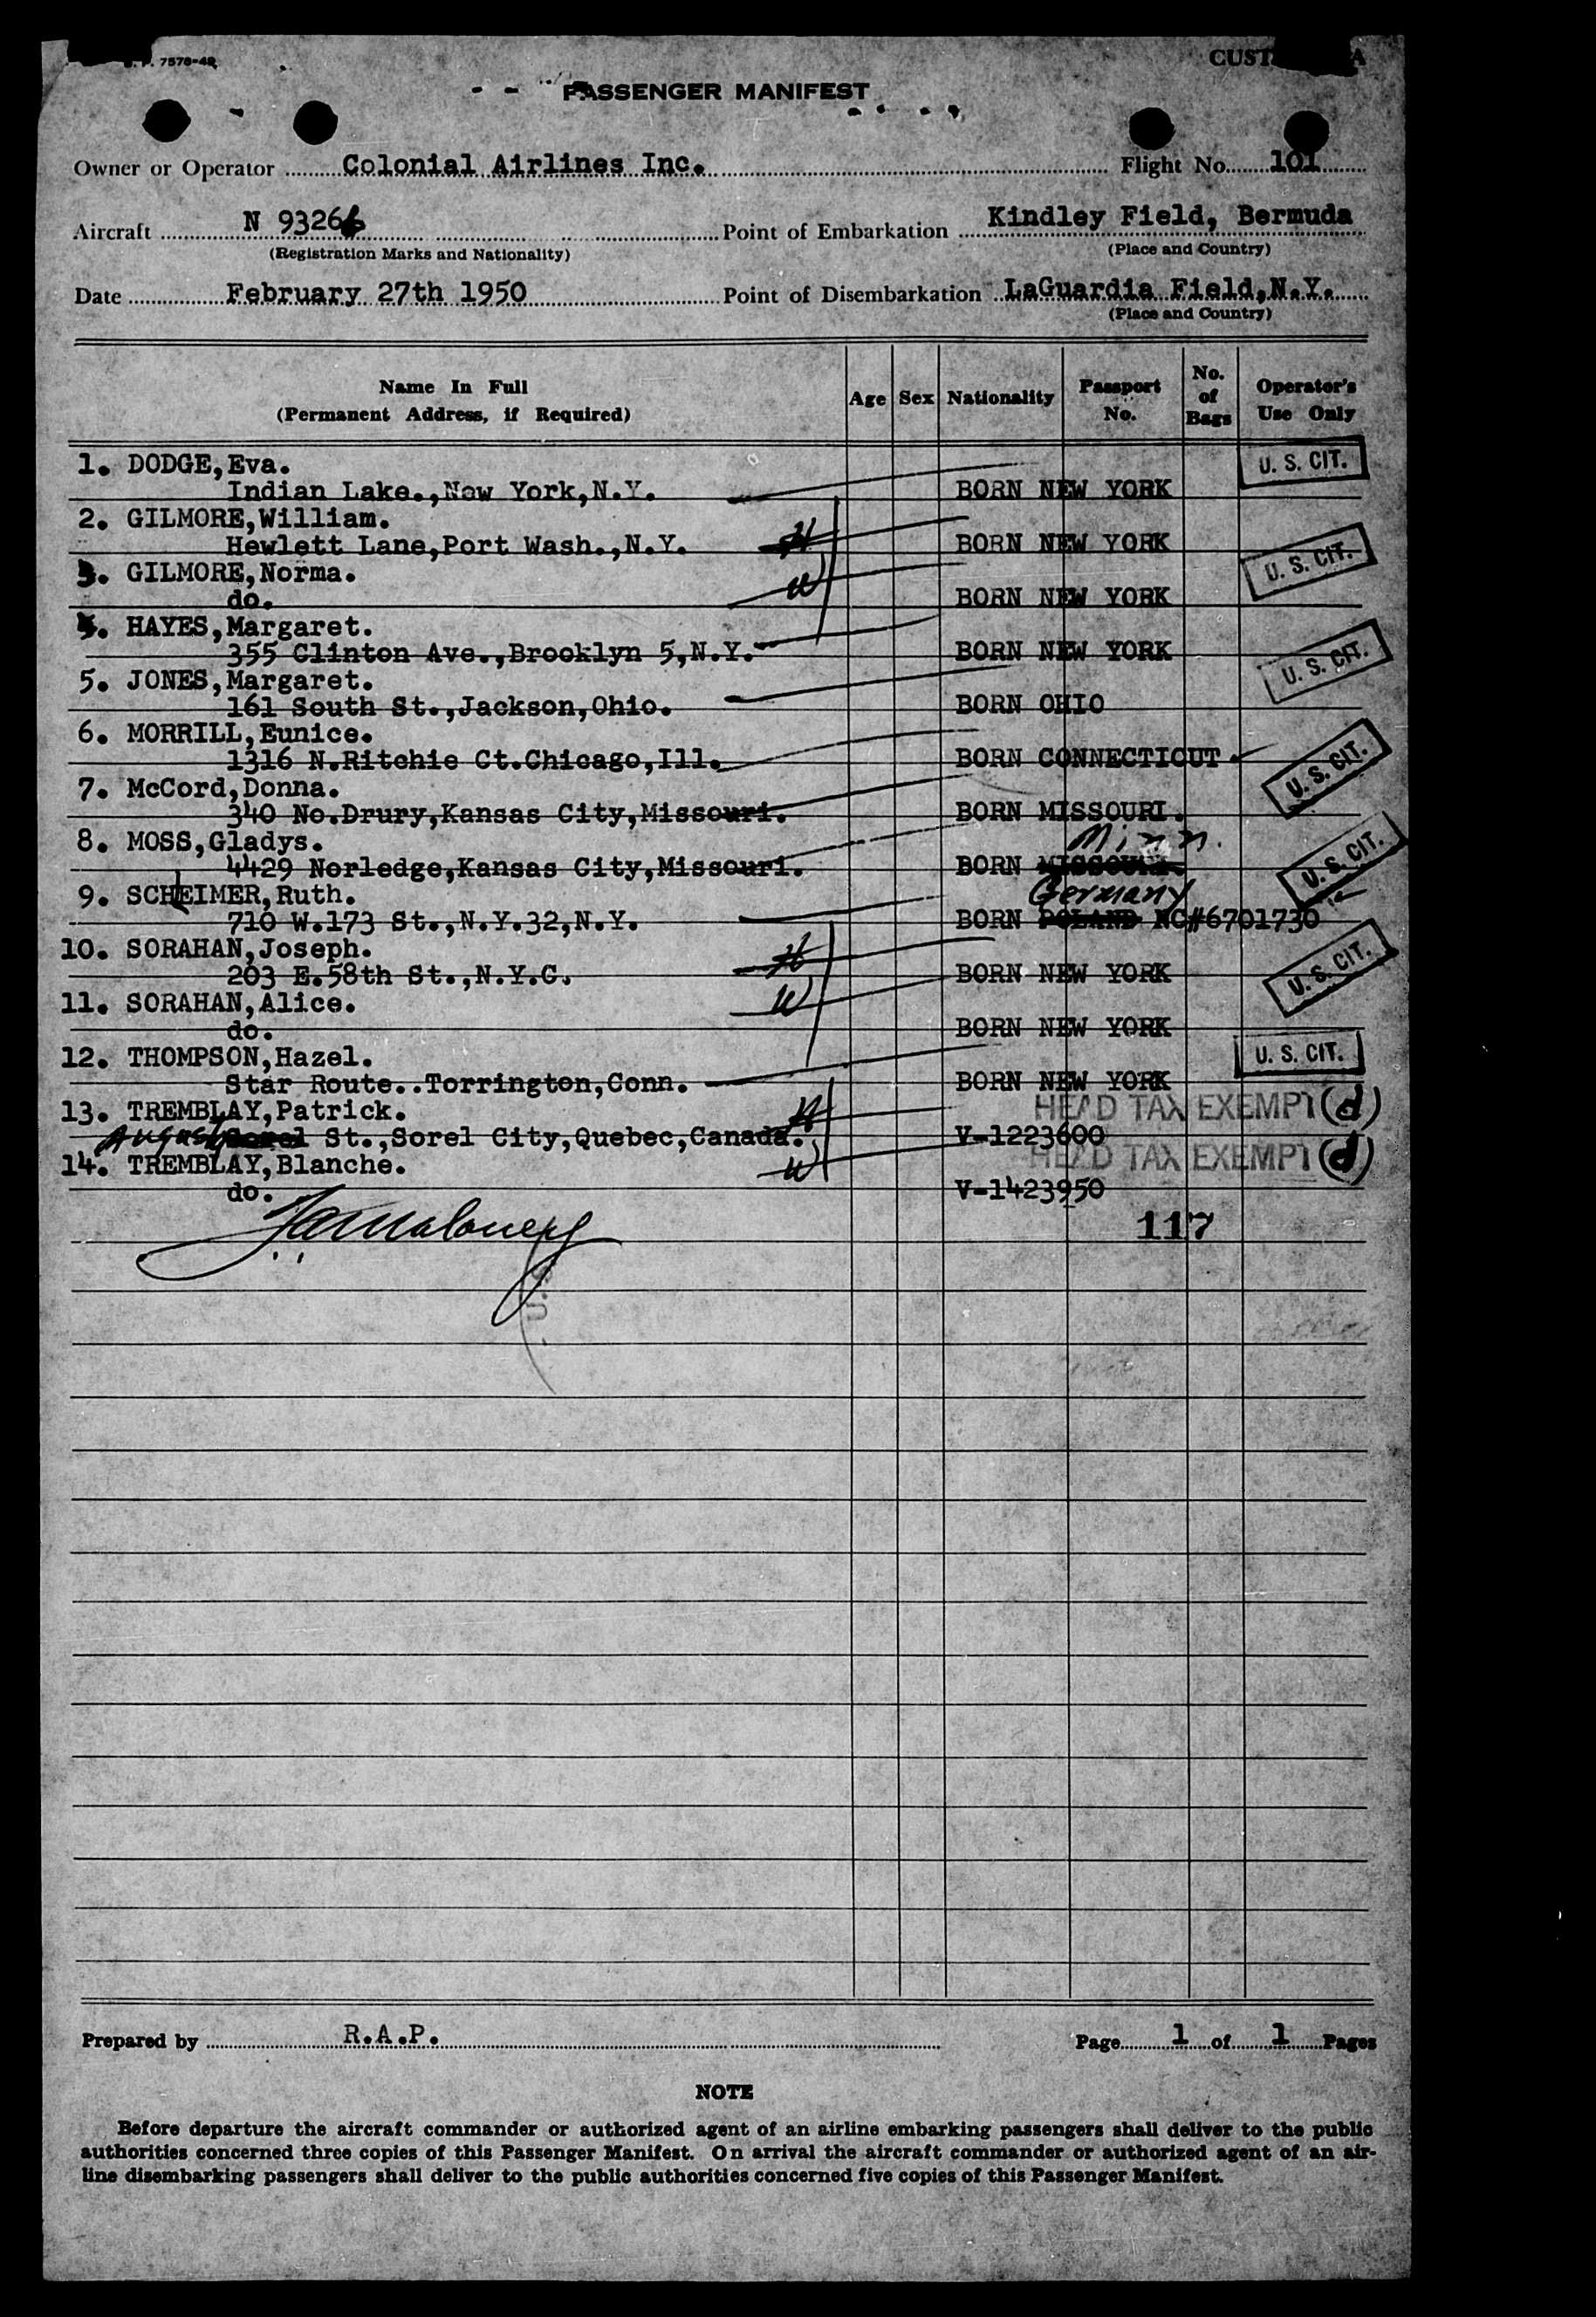 7578-48
PASSENGER MANIFEST
Owner or Operator Colonial Airlines Inc. Flight No. 101
Aircraft N 93266 Point of Embarkation Kindley Field, Bermuda
(Registration Marks and Nationality) (Place and Country)
Date February 27th 1950 Point of Disembarkation LaGuardia Field,N.Y.
(Place and Country)
Name In Full (Permanent Address, if Required) Age Sex Nationality Passport No. No. of Bags Operator's Use Only
1. DODGE,Eva. U. S. CIT.
Indian Lake.,New York,N.Y. BORN NEW YORK
2. GILMORE,William.
Hewlett Lane,Port Wash.,N.Y. H BORN NEW YORK U. S. CIT.
3. GILMORE,Norma.
do. W BORN NEW YORK
4. HAYES,Margaret.
355 Clinton Ave.,Brooklyn 5,N.Y. BORN NEW YORK U. S. CIT.
5. JONES,Margaret.
161 South St.,Jackson,Ohio. BORN OHIO
6. MORRILL,Eunice.
1316 N.Ritchie Ct.Chicago,Ill. BORN CONNECTICUT U. S. CIT.
7. McCord,Donna.
340 No.Drury,Kansas City,Missouri. BORN MISSOURI.
8. MOSS,Gladys. Minn.
4429 Norledge,Kansas City,Missouri. BORN MISSOURI. U. S. CIT.
9. SCHEIMER,Ruth. Germany
710 W.173 St.,N.Y.32,N.Y. BORN POLAND NC#6701730
10. SORAHAN,Joseph.
203 E.58th St.,N.Y.C. H BORN NEW YORK U. S. CIT.
11. SORAHAN,Alice.
do. W BORN NEW YORK
12. THOMPSON,Hazel. U. S. CIT.
Star Route..Torrington,Conn. BORN NEW YORK
13. TREMBLAY,Patrick. H HEAD TAX EXEMPT (d)
August Sorel St.,Sorel City,Quebec,Canada. V-1223600
14. TREMBLAY,Blanche. W HEAD TAX EXEMPT (d)
do. V-1423950
117
Prepared by R.A.P. Page 1 of 1 Pages
NOTE
Before departure the aircraft commander or authorized agent of an airline embarking passengers shall deliver to the public
authorities concerned three copies of this Passenger Manifest. On arrival the aircraft commander or authorized agent of an air-
line disembarking passengers shall deliver to the public authorities concerned five copies of this Passenger Manifest.